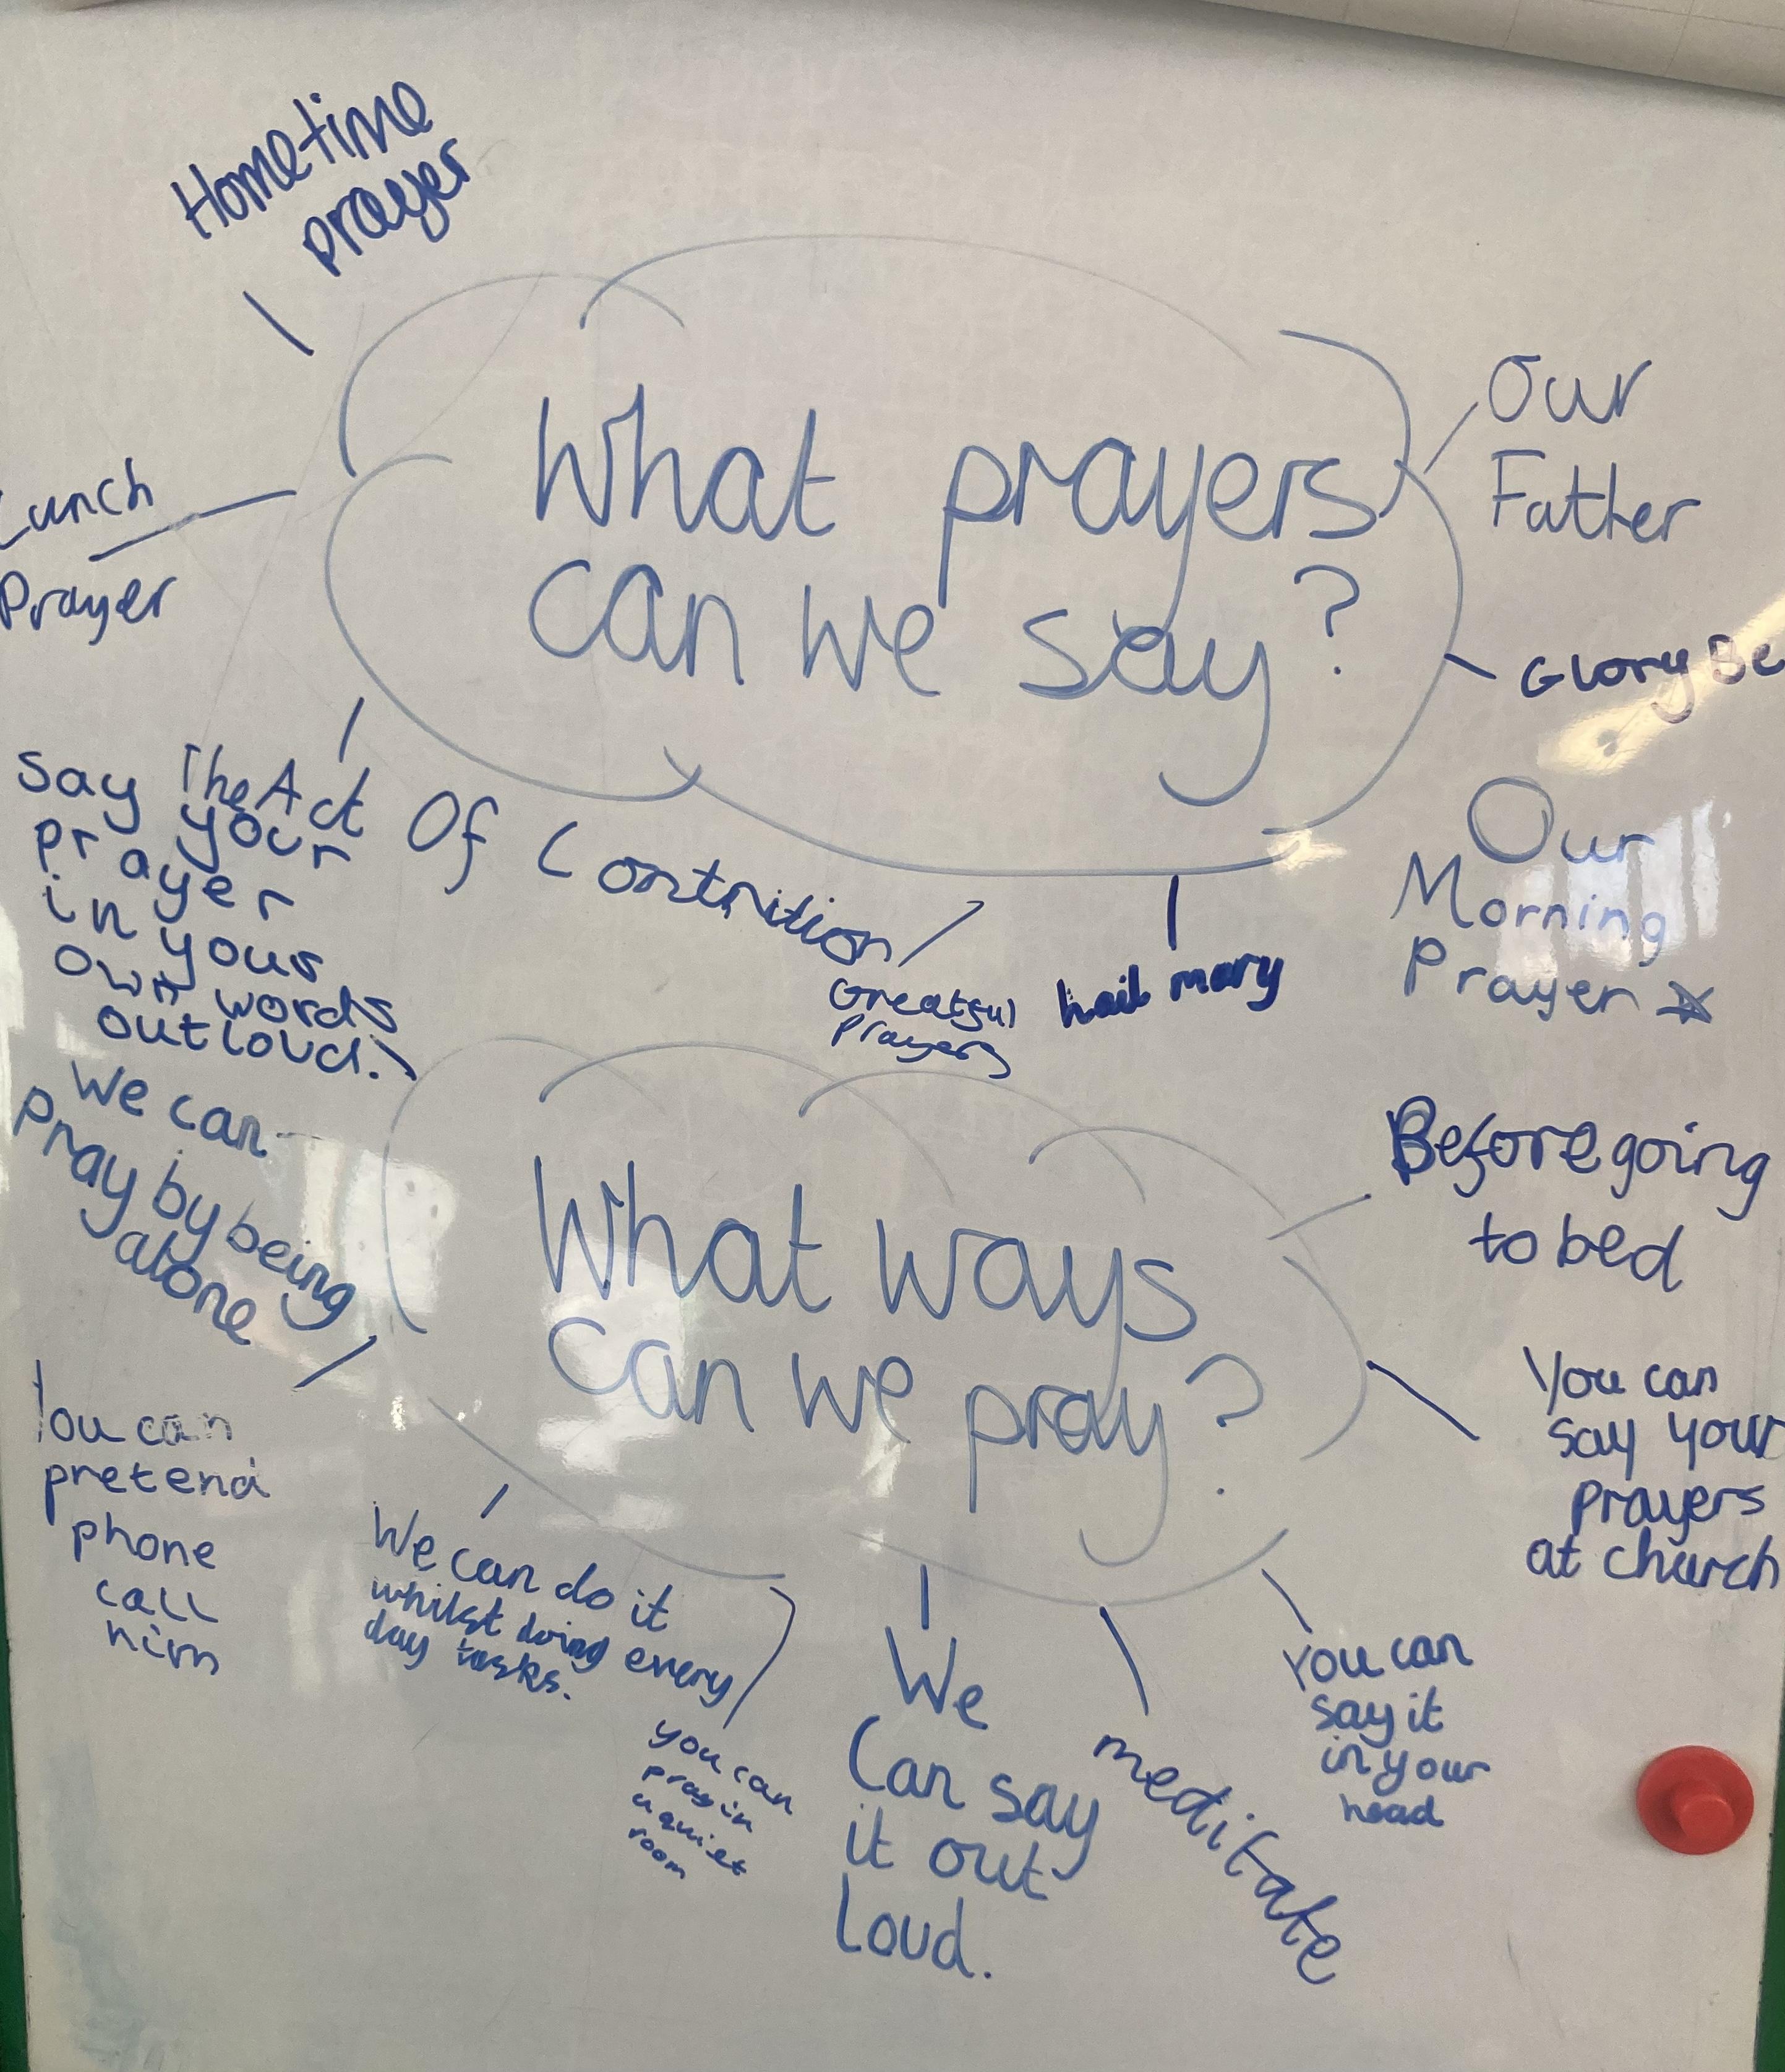 Hometime
prayer
What prayers
can we say?
Our
Father
Lunch
Prayer
Glory Be
The Act Of Contrition
Greatful
Prayers
hail mary
Our
Morning
Prayer
Say your
prayer
in your
own words
out loud.
We can
pray by being
alone
What ways
can we pray?
Before going
to bed
You can
say your
prayers
at church
You can
pretend
phone
call
him
We can do it
whilst doing every
day tasks.
you can
pray in
a quiet
room
We
Can say
it out
loud.
meditate
You can
say it
in your
head